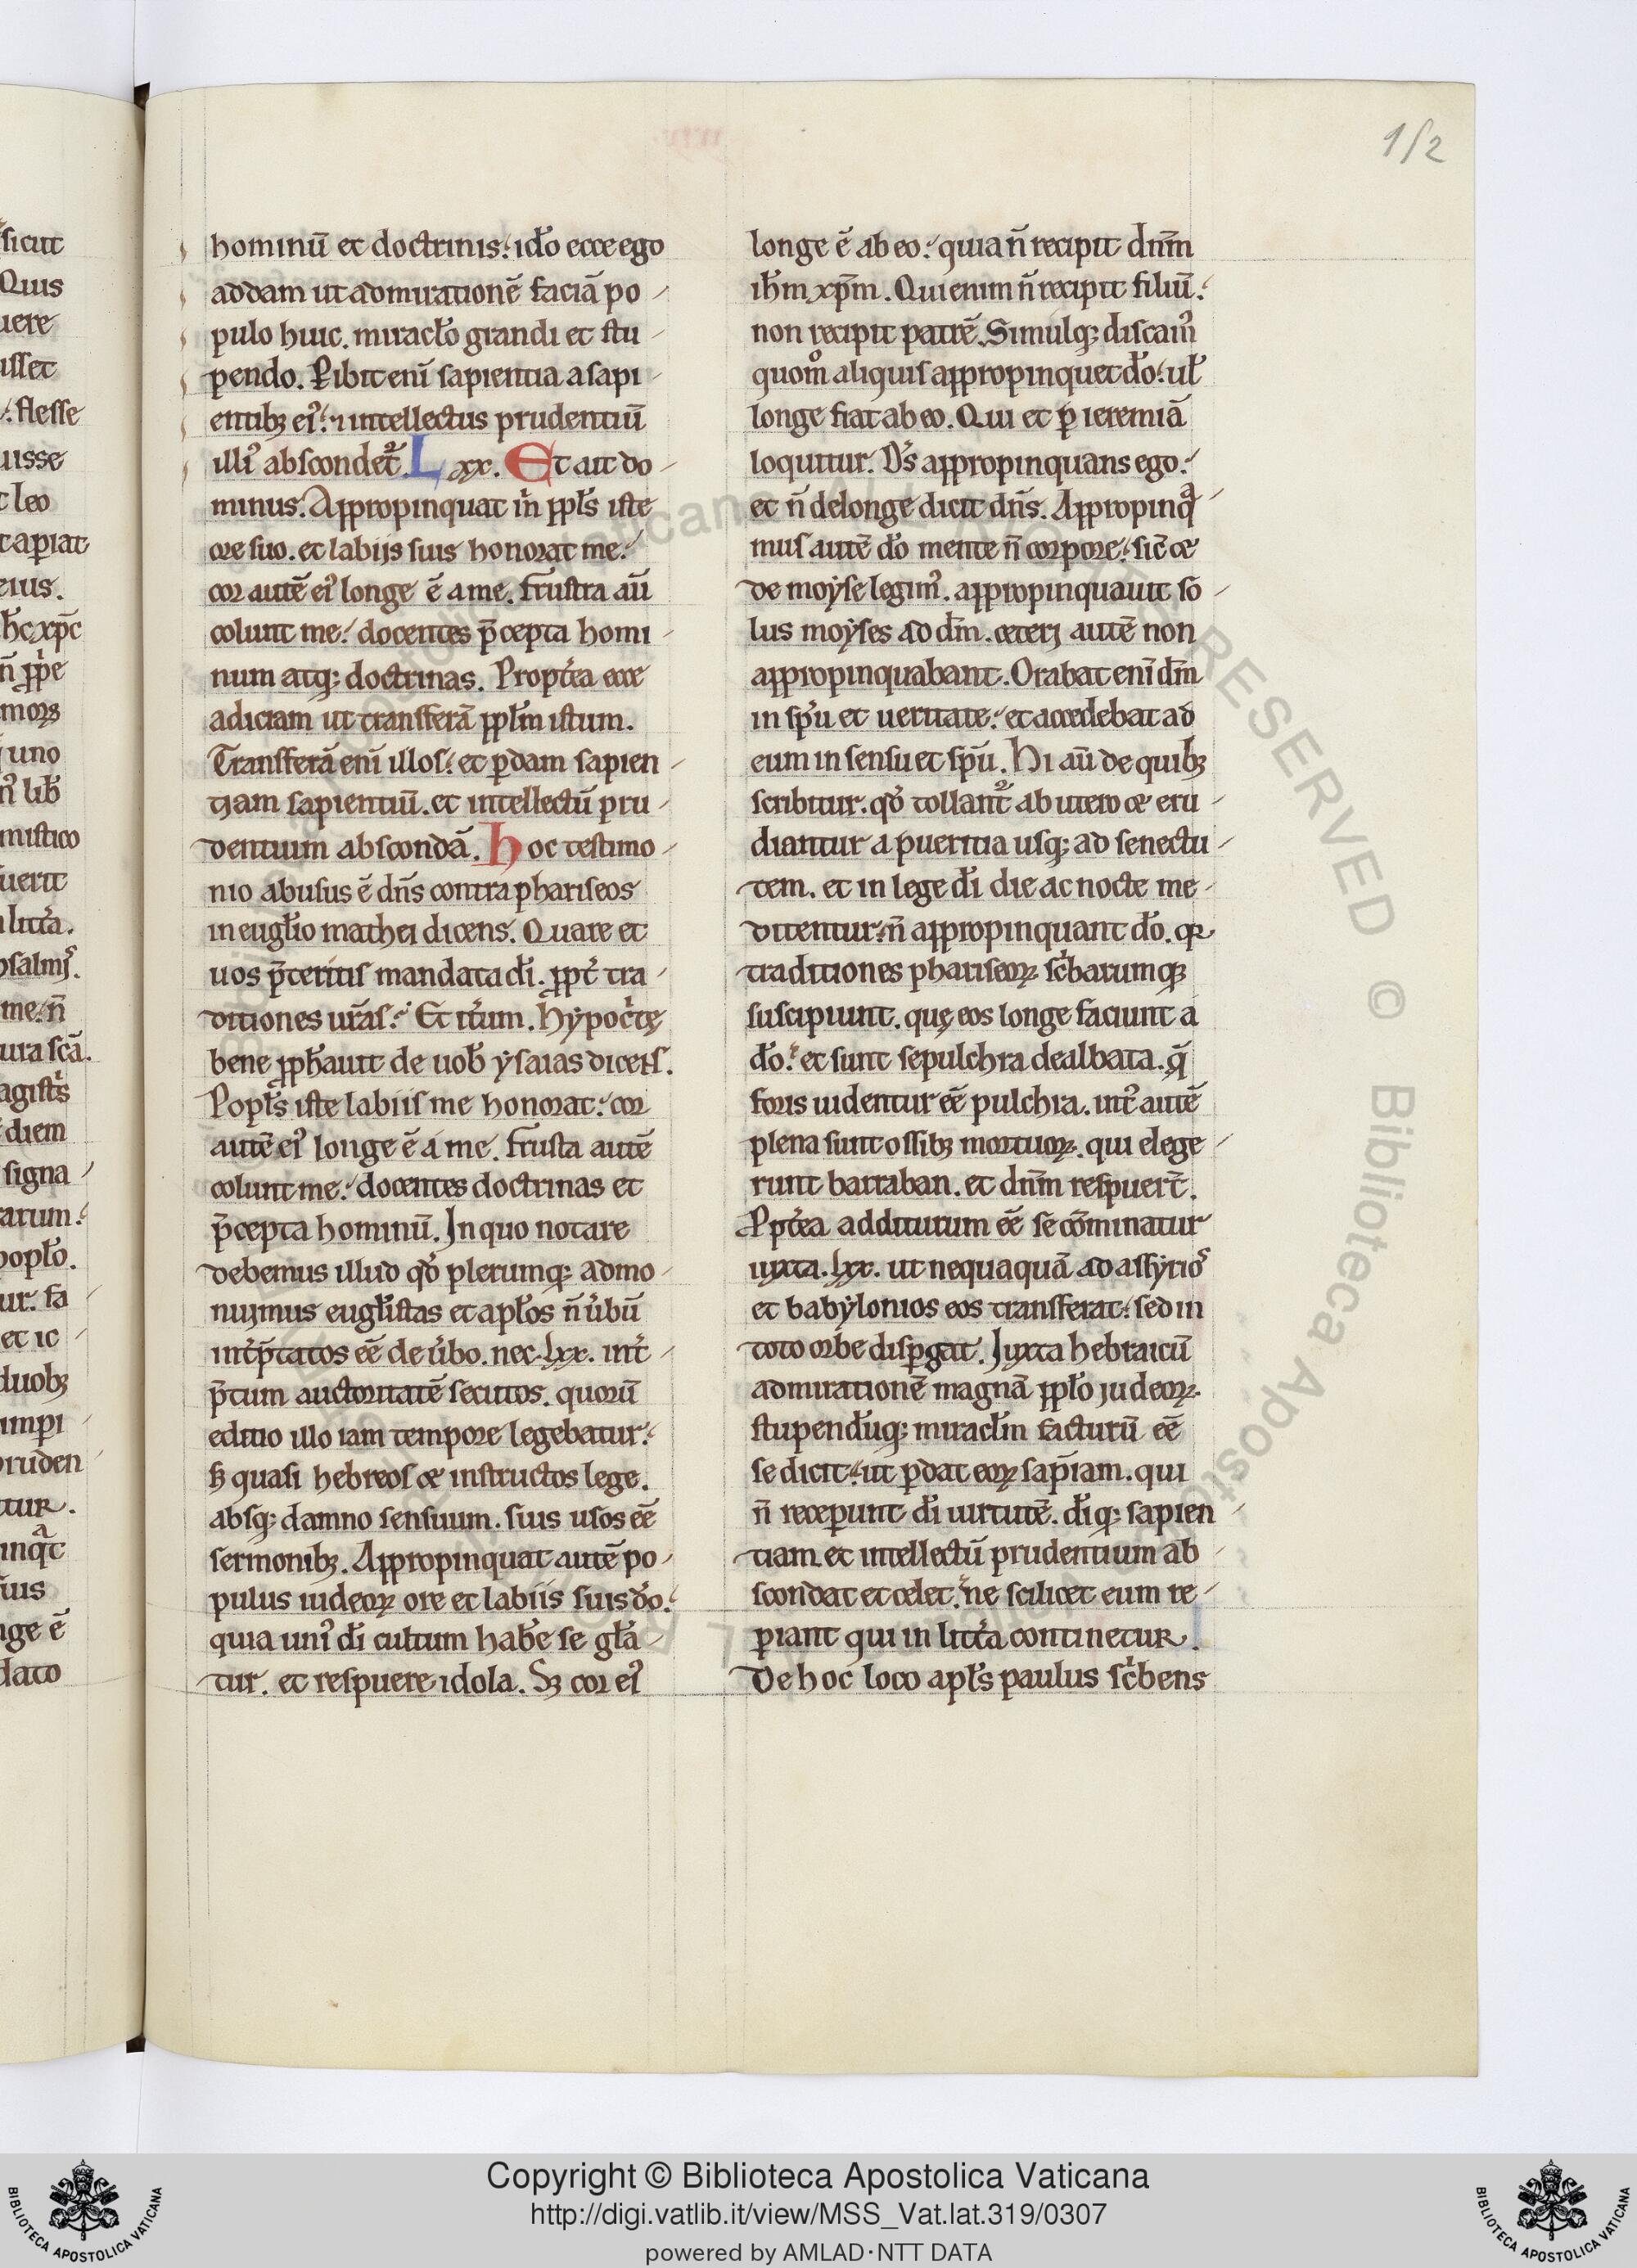 1/2
sicut
Quis
uere
isset
flesse
uisse
t leo
capiat
eius.
h̄c xp̄c
n̄ ꝓpe
uno
mistico
uerit
litt̾a.
psalmꝭ.
me. n̄
ura sc̄a.
diem
signa
arum.
popl̾o.
ur. fa
et ic
duobꝫ
impi
pruden
tur.
ius
nge ē
dato
hominū et doctrinis. id̾o ecce ego
addam ut admirationē faciā po
pulo huic. miracl̾o grandi et stu
pendo. Ꝑibit enī sapientia a sapi
entibꝫ eiꝰ. ⁊ intellectus prudentiū
illiꝰ abscondet᷑. Lxx. Et ait do
minus. Appropinquat m̾ ppl̾s iste
ore suo. et labijs suis honorat me.
cor autē eiꝰ longe ē a me. frustra aū
colunt me. docentes p̄cepta homi
num atqꝫ doctrinas. Propt̾ea ecce
adiciam ut transferā ppl̾m istum.
Transferā enī illos. et ꝑdam sapien
tiam sapientiū. et intellectū pru
dentium abscondā. Hoc testimo
nio abusus ē dn̄s contra phariseos
in eugl̾io mathei dicens. Quare et
uos p̄teritis mandata dī. ꝓpt̾ tra
ditiones ur̄as. Et it̾um. Hẏpoc̾tę
bene ꝓph̾auit de uob̾ ẏsaias dicens.
Popl̾s iste labiis me honorat. cor
autē eiꝰ longe ē a me. frusta autē
colunt me. docentes doctrinas et
p̄cepta hominū. In quo notare
debemus illud qd̾ plerumqꝫ admo
nuimus eugl̾istas et apl̾os n̄ u̾bū
int̾p̄tatos eē de u̾bo. nec lxx. int̾
p̄tum auctoritatē secutos. quorū
editio illo iam tempore legebatur.
s; quasi hebreos ce instructos lege.
absqꝫ damno sensuum. suis usos eē
sermonibꝫ. Appropinquat autē po
pulus iudeoꝝ ore et labiis suis d̾o.
quia uniꝰ dī cultum hab̾e se gl̾a
tur. et respuere idola. Sꝫ cor eiꝰ
longe ē ab eo. quia n̄ recipit dn̄m
ih̄m xp̄m. Qui enim n̄ recipit filiū.
non recipit patrē. Simulqꝫ discamꝰ
quom̊ aliquis appropinquet d̾o. ul̾
longe fiat ab eo. Qui et ꝑ ieremiā
loquitur. D̾s appropinquans ego.
et n̄ delonge dicit dn̄s. Appropinqͣ
mus autē d̾o mente n̄ corpore. sic̄ ce
de moẏse legimꝰ. appropinquauit so
lus moẏses ad dm̄. ceteri autē non
appropinquabant. Orabat enī dm̄
in sp̄u et ueritate. et accedebat ad
eum in sensu et sp̄u. Hi aū de quibꝫ
scribitur. qd̾ tollant᷑ ab utero ce eru
diantur a pueritia usqꝫ ad senectu
tem. et in lege dī die ac nocte me
ditentur. n̄ appropinquant d̾o. qꝛ
traditiones phariseoꝝ sc̾barumqꝫ
suscipiunt. quę eos longe faciunt a
d̾o. et sunt sepulchra dealbata. q̄
foris uidentur eē pulchra. int᷑ autē
plena sunt ossibꝫ mortuoꝝ. qui elege
runt barraban. et dn̄m respuer̄t.
Ppt̾ea additurum eē se cōminatur
iuxta. lxx. ut nequaquā ad assẏrioꝰ
et babẏlonios eos transferat. sed in
toto orbe disꝑgat. Iuxta hebraicū
admirationē magnā ppl̾o judeoꝝ
stupend̾uqꝫ miracl̾m facturū eē
se dicit. ut ꝑdat eoꝝ sap̄iam. qui
n̄ receperunt dī uirtutē. dīqꝫ sapien
tiam et intellectū prudentium ab
scondat et celet. ne scilicet eum re
ꝑiant qui in litt̾a continetur.
De hoc loco apl̾s paulus sc̾bens
Copyright © Biblioteca Apostolica Vaticana
http://digi.vatlib.it/view/MSS_Vat.lat.319/0307
powered by AMLAD·NTT DATA
BIBLIOTECA APOSTOLICA VATICANA
BIBLIOTECA APOSTOLICA VATICANA